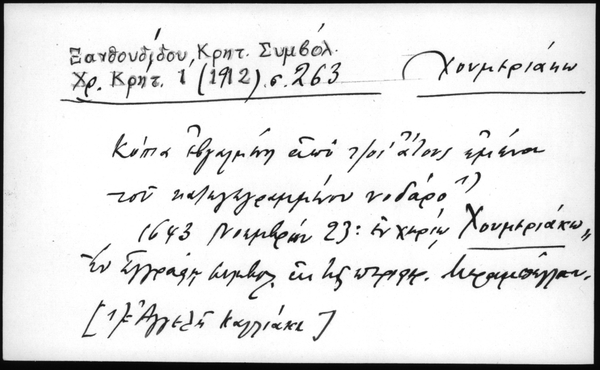 Ξανθουδίδου, Κρητ. Συμβόλ.
Χρ. Κρητ. 1 (1912) σ. 263
Χουμεριάκω
Κόπια ἐβγαλμένη ἀπὸ τοὶ ἄτους ἐμένα
τοῦ καταγεγραμμένου νοδάρο 1)
1643 Νοεμβρίου 23: ἐν χωρίῳ Χουμεριάκω„
Ἐν ἐγγράφῳ ἐκ τῆς περιφ. Μεραμπέλλου.
[1) Ἀγγελῆ Καλλιάκι]